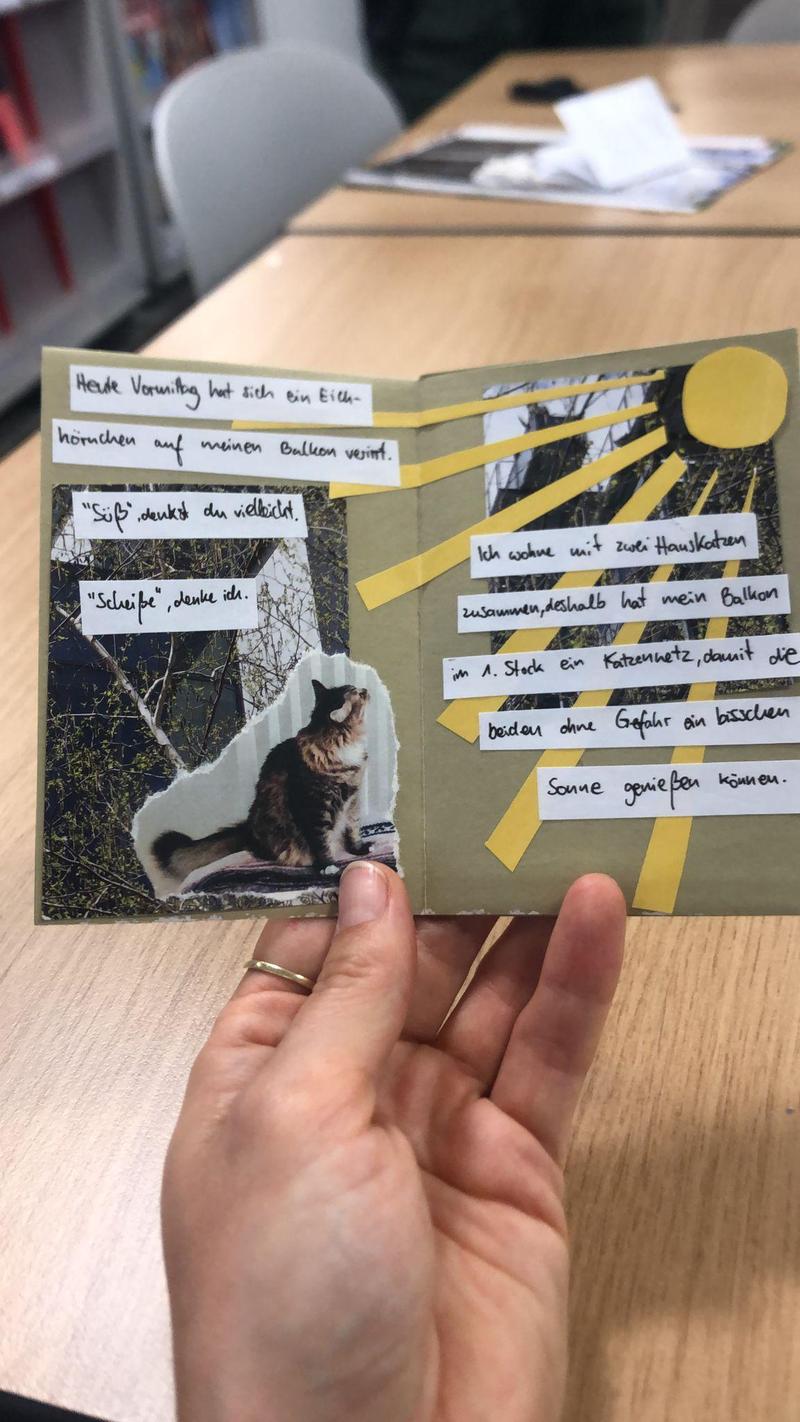 Heute Vormittag hat sich ein Eich-
hörnchen auf meinen Balkon verirrt.
"Süß", denkst du vielleicht.
"Scheiße", denke ich.
Ich wohne mit zwei Hauskatzen
zusammen, deshalb hat mein Balkon
im 1. Stock ein Katzennetz, damit die
beiden ohne Gefahr ein bisschen
Sonne genießen können.